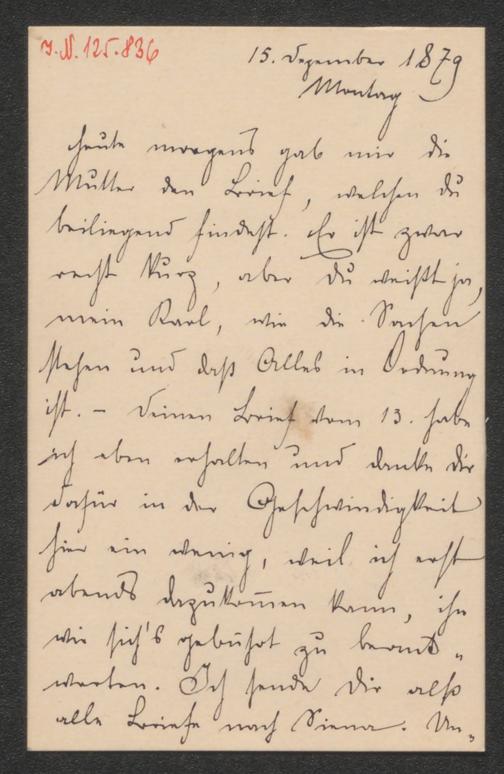 J.N. 125.836
15. Dezember 1879
Montag
Heute morgens gab mir die
Mutter den Brief, welchen du
beiliegend findest. Er ist zwar
recht kurz, aber du weißt ja,
mein Karl, wie die Sachen
stehen und daß Alles in Ordnung
ist. – Deinen Brief vom 13. habe
ich eben erhalten und danke dir
dafür in der Geschwindigkeit
hier ein wenig, weil ich erst
abends dazukom̄en kann, ihn
wie sich's gebührt zu beant„
worten. Ich sende dir also
alle Briefe nach Siena. Un„